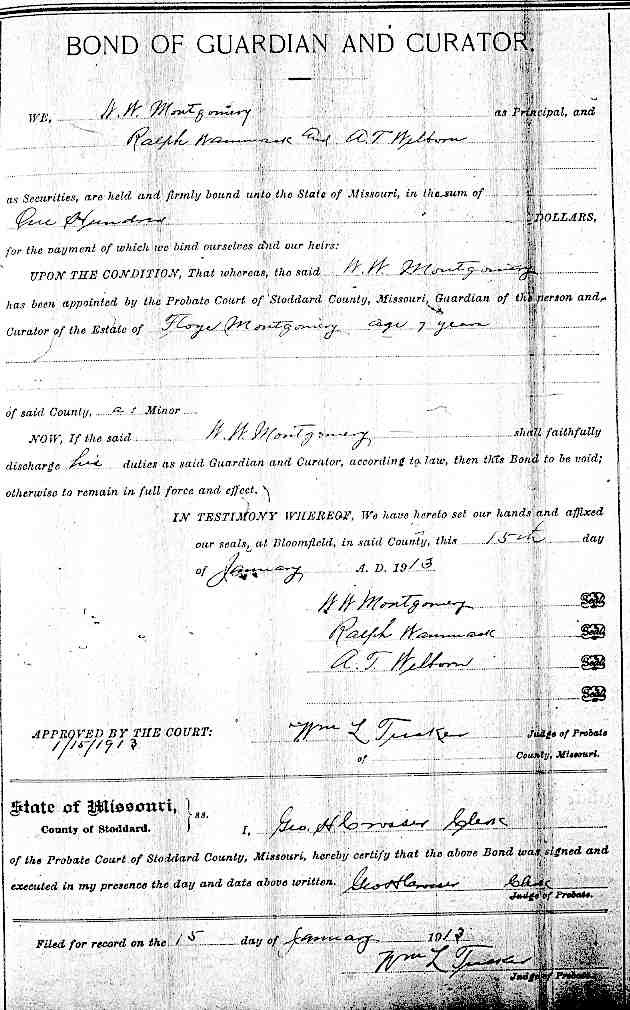 BOND OF GUARDIAN AND CURATOR.
WE, W. W. Montgomery as Principal, and
Ralph Wammack and A. T. Welborn
as Securities, are held and firmly bound unto the State of Missouri, in the sum of
One Hundred DOLLARS,
for the payment of which we bind ourselves and our heirs:
UPON THE CONDITION, That whereas, the said W. W. Montgomery
has been appointed by the Probate Court of Stoddard County, Missouri, Guardian of the person and
Curator of the Estate of Floye Montgomery age 7 years
of said County, a s Minor
NOW, If the said W. W. Montgomery shall faithfully
discharge his duties as said Guardian and Curator, according to law, then this Bond to be void;
otherwise to remain in full force and effect.
IN TESTIMONY WHEREOF, We have hereto set our hands and affixed
our seals, at Bloomfield, in said County, this 15th day
of January A. D. 1913
W W Montgomery Seal
Ralph Wammack Seal
A. T. Welborn Seal
Seal
APPROVED BY THE COURT: Wm L Tucker Judge of Probate
1/15/1913 of County, Missouri.
State of Missouri, ss.
County of Stoddard. I, Geo. H Clerk
of the Probate Court of Stoddard County, Missouri, hereby certify that the above Bond was signed and
executed in my presence the day and date above written. Geo H Clerk
Judge of Probate.
Filed for record on the 15 day of January 1913
Wm L Tucker
Judge of Probate.